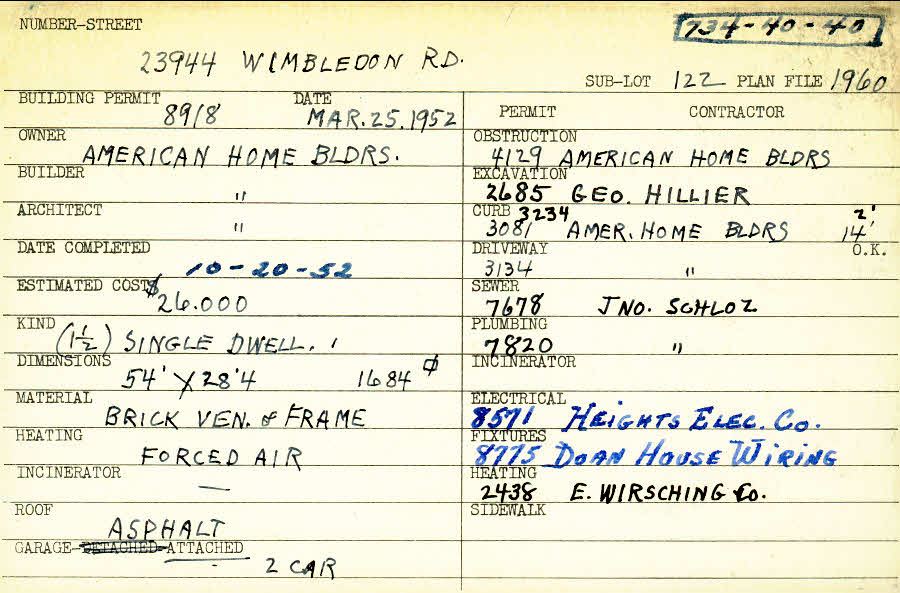 NUMBER-STREET
734-40-40
23944 WIMBLEDON RD.
SUB-LOT 122 PLAN FILE 1960
BUILDING PERMIT DATE
8918 MAR. 25. 1952
OWNER
AMERICAN HOME BLDRS.
BUILDER
"
ARCHITECT
"
DATE COMPLETED
10-20-52
ESTIMATED COST $
26.000
KIND
(1½) SINGLE DWELL.
DIMENSIONS
54' X 28'4 1684
MATERIAL
BRICK VEN. & FRAME
HEATING
FORCED AIR
INCINERATOR
—
ROOF
ASPHALT
GARAGE-DETACHED-ATTACHED
2 CAR
PERMIT CONTRACTOR
OBSTRUCTION
4129 AMERICAN HOME BLDRS
EXCAVATION
2685 GEO. HILLIER
CURB 3234 2'
3081 AMER. HOME BLDRS 14'
DRIVEWAY O.K.
3134 "
SEWER
7678 JNO. SCHLOZ
PLUMBING
7820 "
INCINERATOR
ELECTRICAL
8571 HEIGHTS ELEC. CO.
FIXTURES
8775 DOAN HOUSE WIRING
HEATING
2438 E. WIRSCHING CO.
SIDEWALK